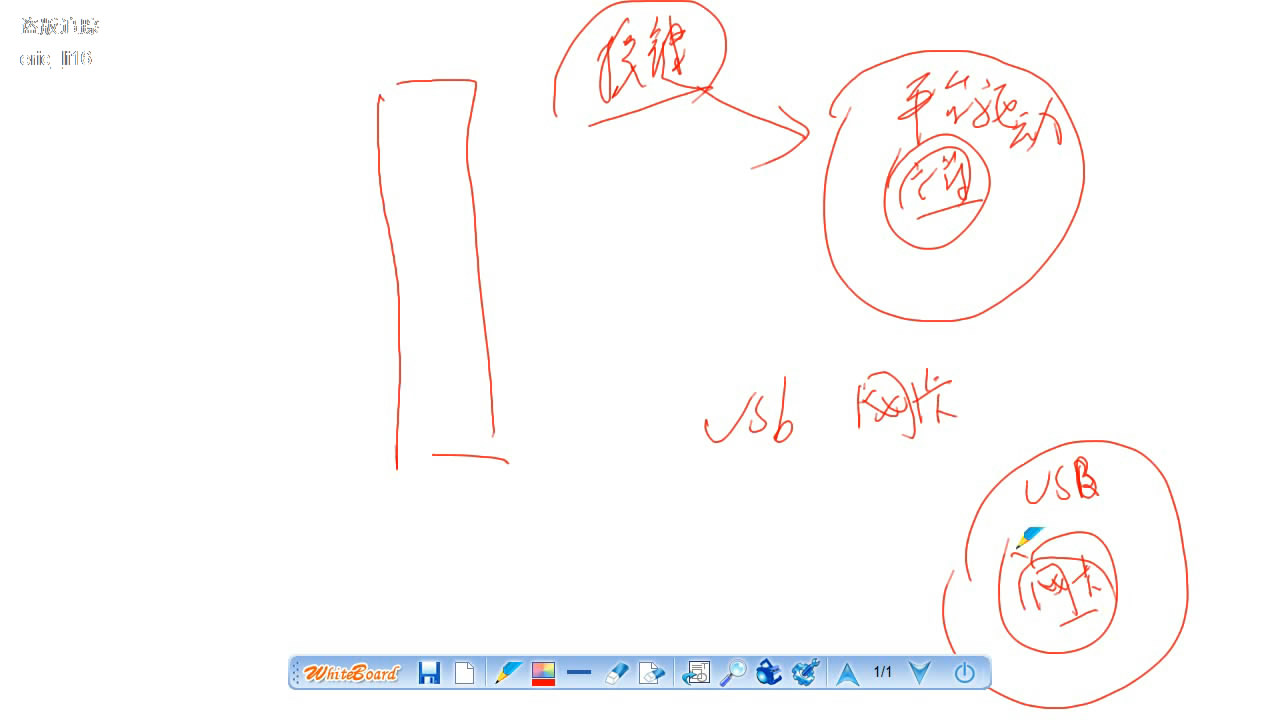 盗版追踪
eric_li16
按键
平台驱动
usb 网卡
USB
网卡
WhiteBoard
1/1